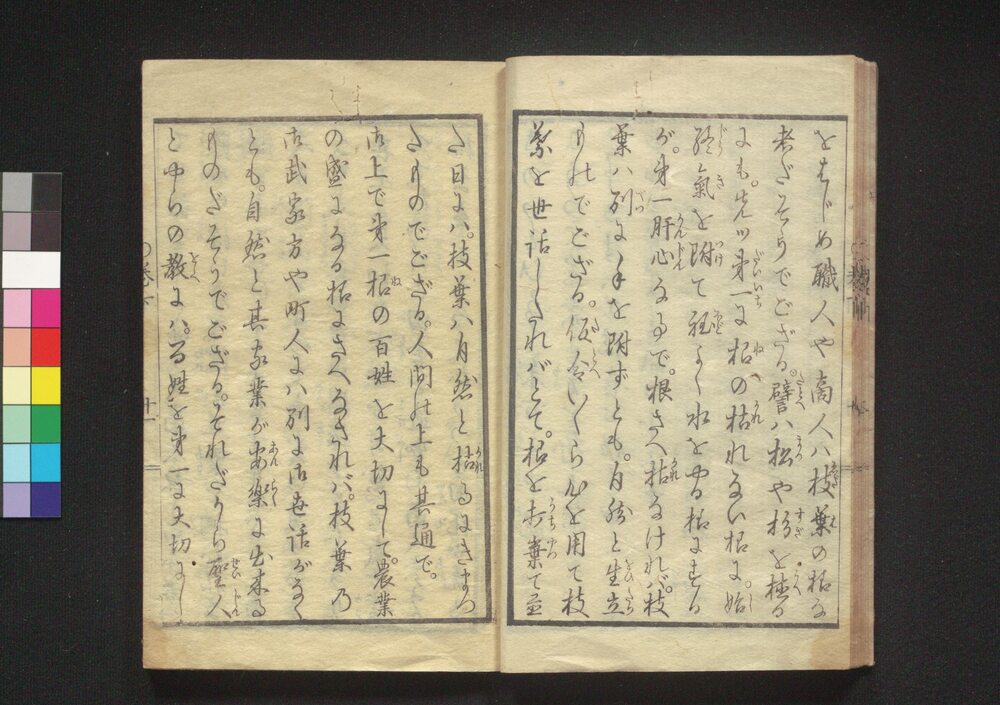 をはじめ職人や商人ハ枝葉の様な
者だそうでござる。譬ハ松や杉を植る
にも。先ツ第一に根の枯れない様に。始
終氣を附て程よく水をやる様にする
が。第一肝心な事で。根さへ枯なけれバ。枝
葉ハ別に手を附ずとも。自然と生立
ものでござる。仮令いくら心を用て枝
葉を世話したれバとて。根を打棄て置
た日にハ。枝葉ハ自然と枯るにきまつ
たものでござる。人間の上も其通で。
御上で第一根の百姓を大切にして。農業
の盛になる様にさへなされバ。枝葉乃
御武家方や町人にハ別に御世話がなく
とも。自然と其家業が安楽に出来る
ものだそうでござる。それだから聖人
とやらの教にハ。百姓を第一に大切にし